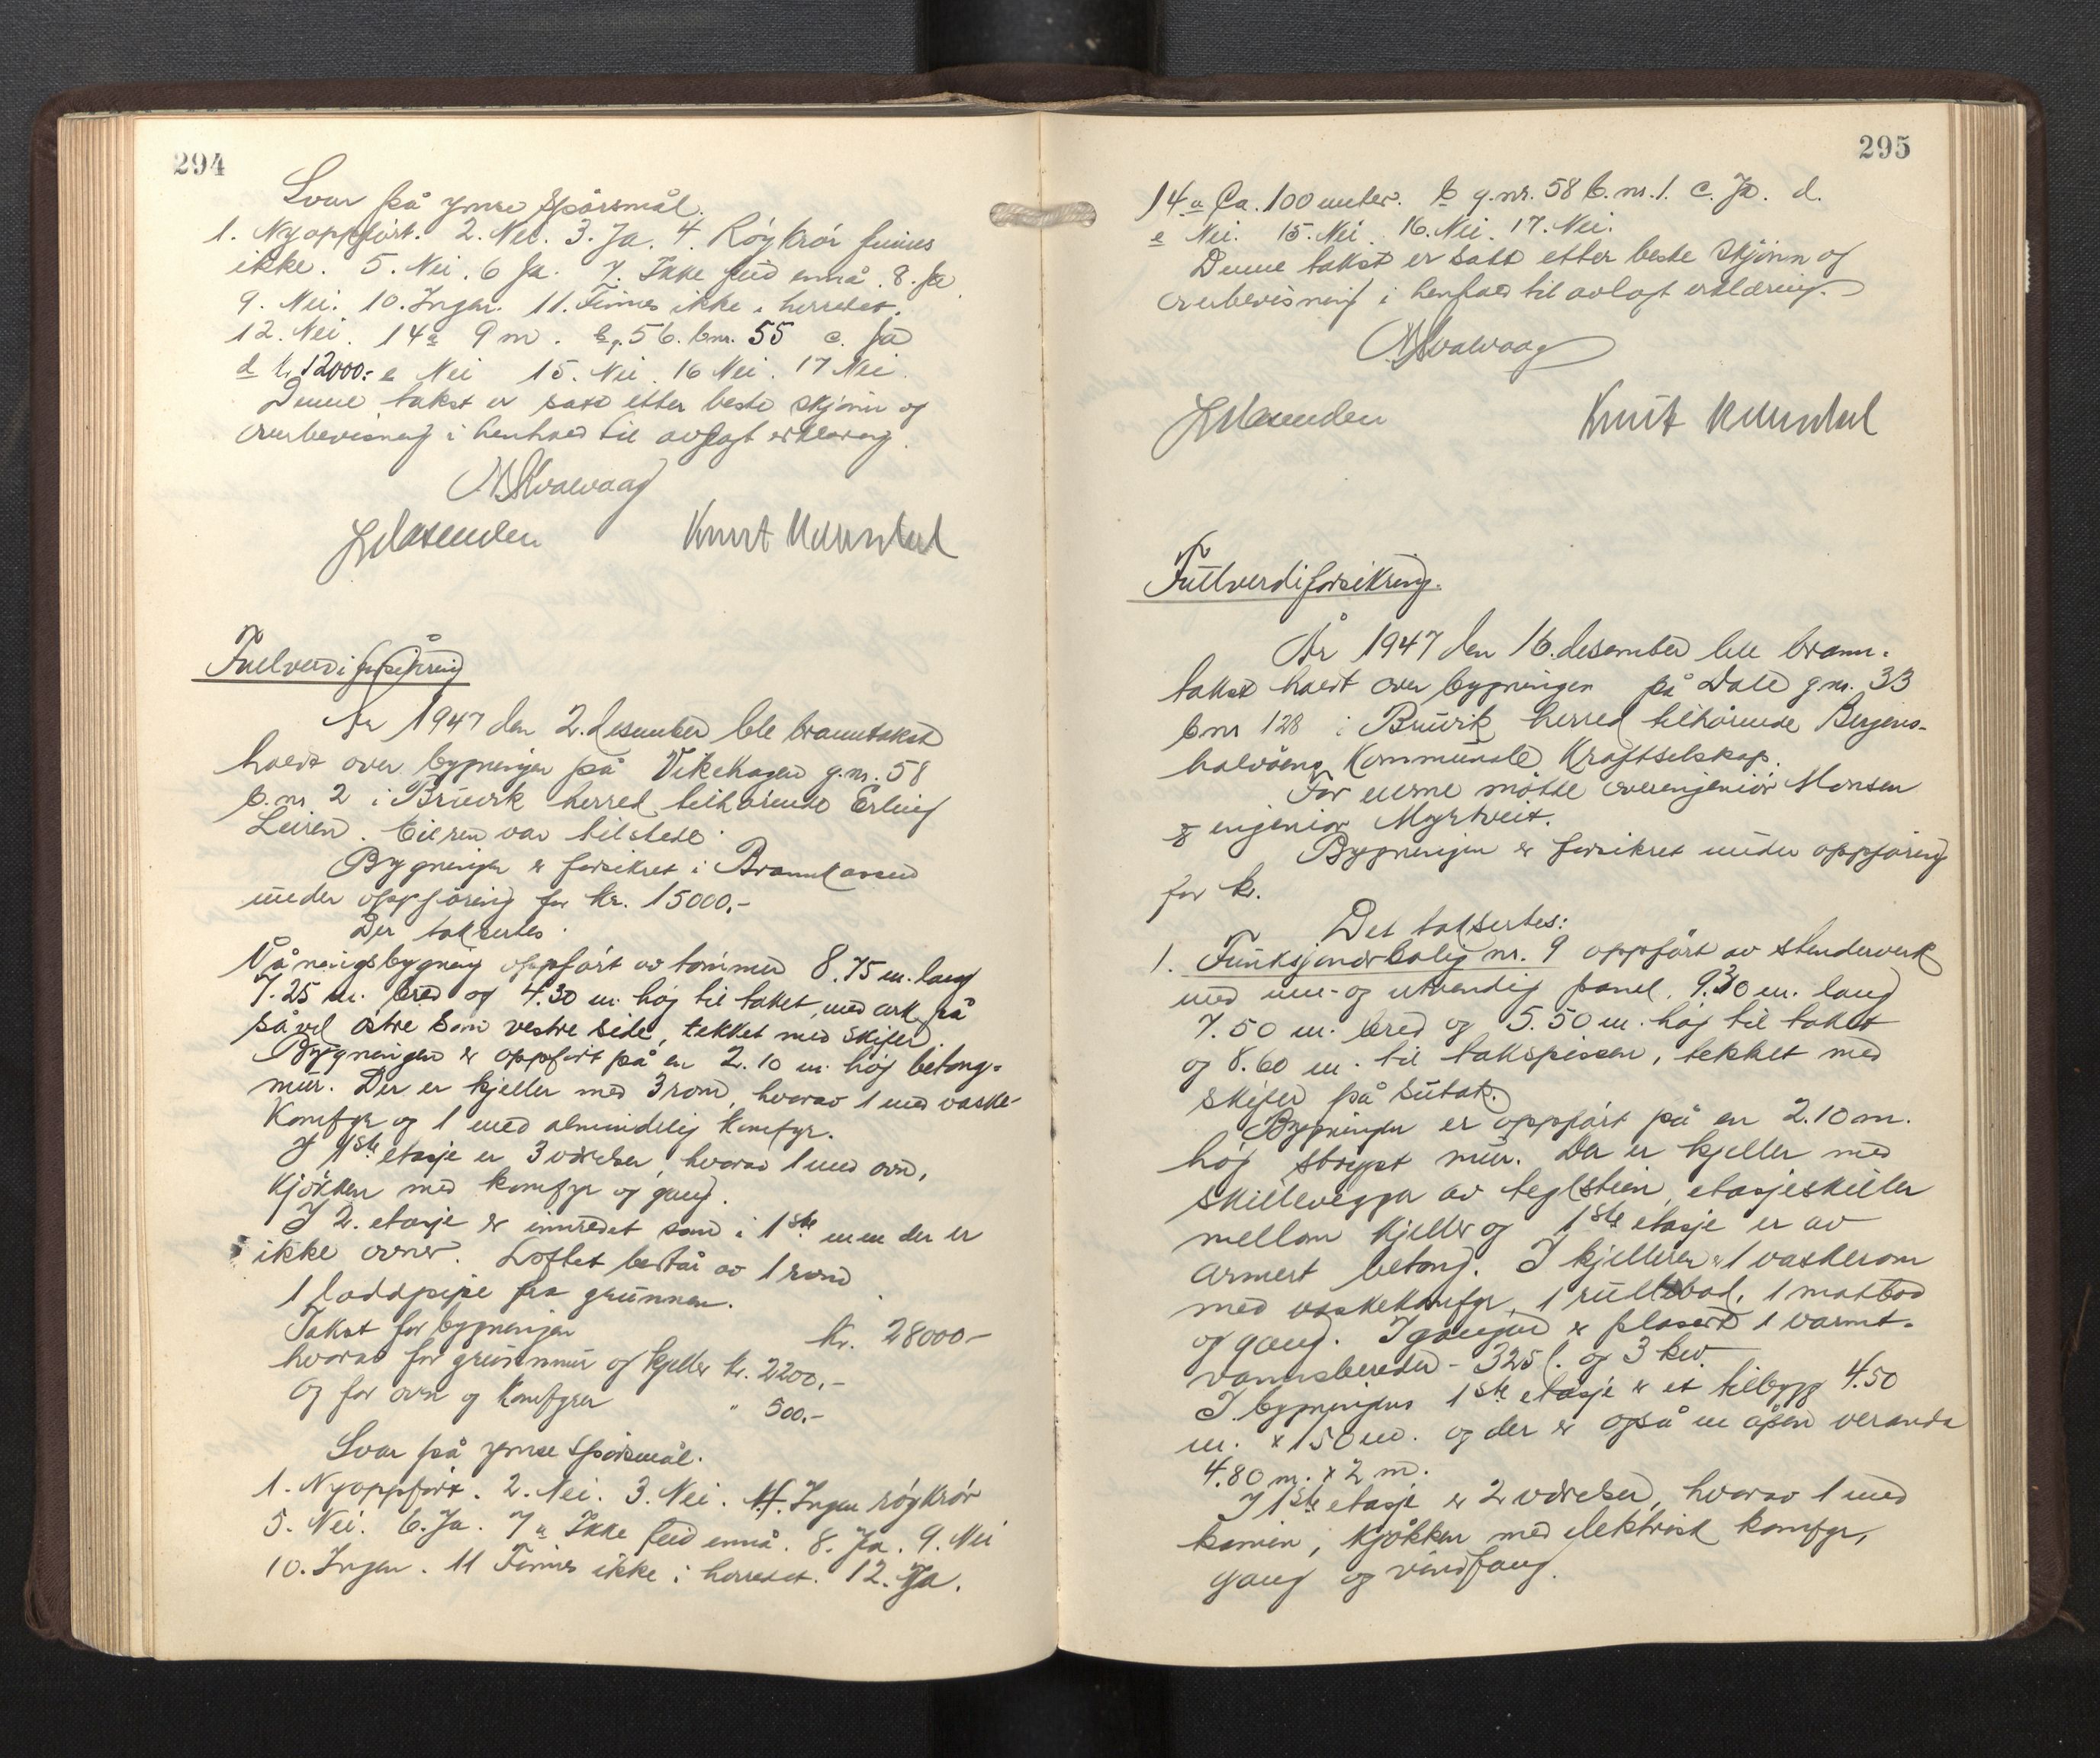 294
Svar på ymse spörsmål.
1. Nyoppfört. 2. Nei. 3. Ja. 4. Röykrör finnes
ikke. 5. Nei. 6 Ja. 7. Ikke feid ennå. 8. Ja
9. Nei. 10. Ingen. 11. Finnes ikke i herredet.
12. Nei. 14 a 9 m. b g. 56. bnr. 55 c. Ja
d kr 12000:- e Nei 15. Nei. 16 Nei. 17 Nei.
Denne takst er satt etter beste skjönn og
overbevisning i henhold til avlagt erklæring.
Knut
Fullverdiforsikring
År 1947 den 2. desember ble branntakst
holdt over bygningen på Vikehagen g.nr. 58
b.nr. 2 i Bruvik herred tilhörende Erling
Leiren. Eieren var tilstede.
Bygningen er forsikret i Brannkassen
under oppföring for kr. 15000,-
Der taksertes:
Våningsbygning oppfört av tömmer 8.75 m. lang
7.25 m. bred og 4.30 m. höj til taket, med ark på
såvel östre som vestre side, tekket med skifer.
Bygningen er oppfört på en 2.10 m. höj betong-
mur. Der er kjeller med 3 rom, hvorav 1 med vaske-
komfyr og 1 med almindelig komfyr.
I 1ste etasje er 3 værelser, hvorav 1 med ovn,
kjökken med komfyr og gang.
I 2. etasje er innredet som i 1ste men der er
ikke ovner. Loftet består av 1 rom
1 loddpipe fra grunnen.
Takst for bygningen kr. 28000-
hvorav for grunnmur og kjeller kr. 2200,-
og for ovn og komfyrer " 500,-
Svar på ymse spörsmål.
1. Nyoppfört. 2. Nei. 3. Nei. 4. Ingen röykrör
5. Nei. 6. Ja. 7 a Ikke feid ennå. 8. Ja. 9. Nei
10. Ingen. 11 Finnes ikke i herredet. 12. Ja.
295
14 a Ca. 100 meter. b g.nr. 58 b.nr. 1. c. Ja. d.
e Nei. 15. Nei. 16. Nei. 17. Nei.
Denne takst er satt etter beste skjönn og
overbevisning i henhold til avlagt erklæring.
Knut
Fullverdiforsikring.
År 1947 den 16. desember ble brann-
takst holdt over bygningen på Dale g.nr. 33
b.nr 128 i Bruvik herred tilhörende Bergens-
halvöens Kommunale Kraftselskap.
For eierne mötte overingeniör Monsen
og ingeniör Myrtveit.
Bygningen er forsikret under oppföring
for kr.
Det taksertes:
1. Funksjonærbolig nr. 9 oppfört av stenderverk
med inn- og utvendig panel. 9.30 m. lang
7.50 m. bred og 5.50 m. höj til taket
og 8.60 m. til takspissen, tekket med
skifer på sutak.
Bygningen er oppfört på en 2.10 m.
höj stöypt mur. Der er kjeller med
skillevegger av teglstein, etasjeskiller
mellom kjeller og 1ste etasje er av
armert betong. I kjelleren er 1 vaskerom
med vaskekomfyr, 1 rullebod, 1 matbod
og gang. I gangen er plasert 1 varmt-
vannsbereder - 325 l. og 3 kw.
I bygningens 1ste etasje er et tilbygg 4.50
m. x 1.50 m. og der er også en åpen veranda
4.80 m. x 2 m.
I 1ste etasje er 2 værelser, hvorav 1 med
kamin, kjökken med elektrisk komfyr,
gang og vindfang.